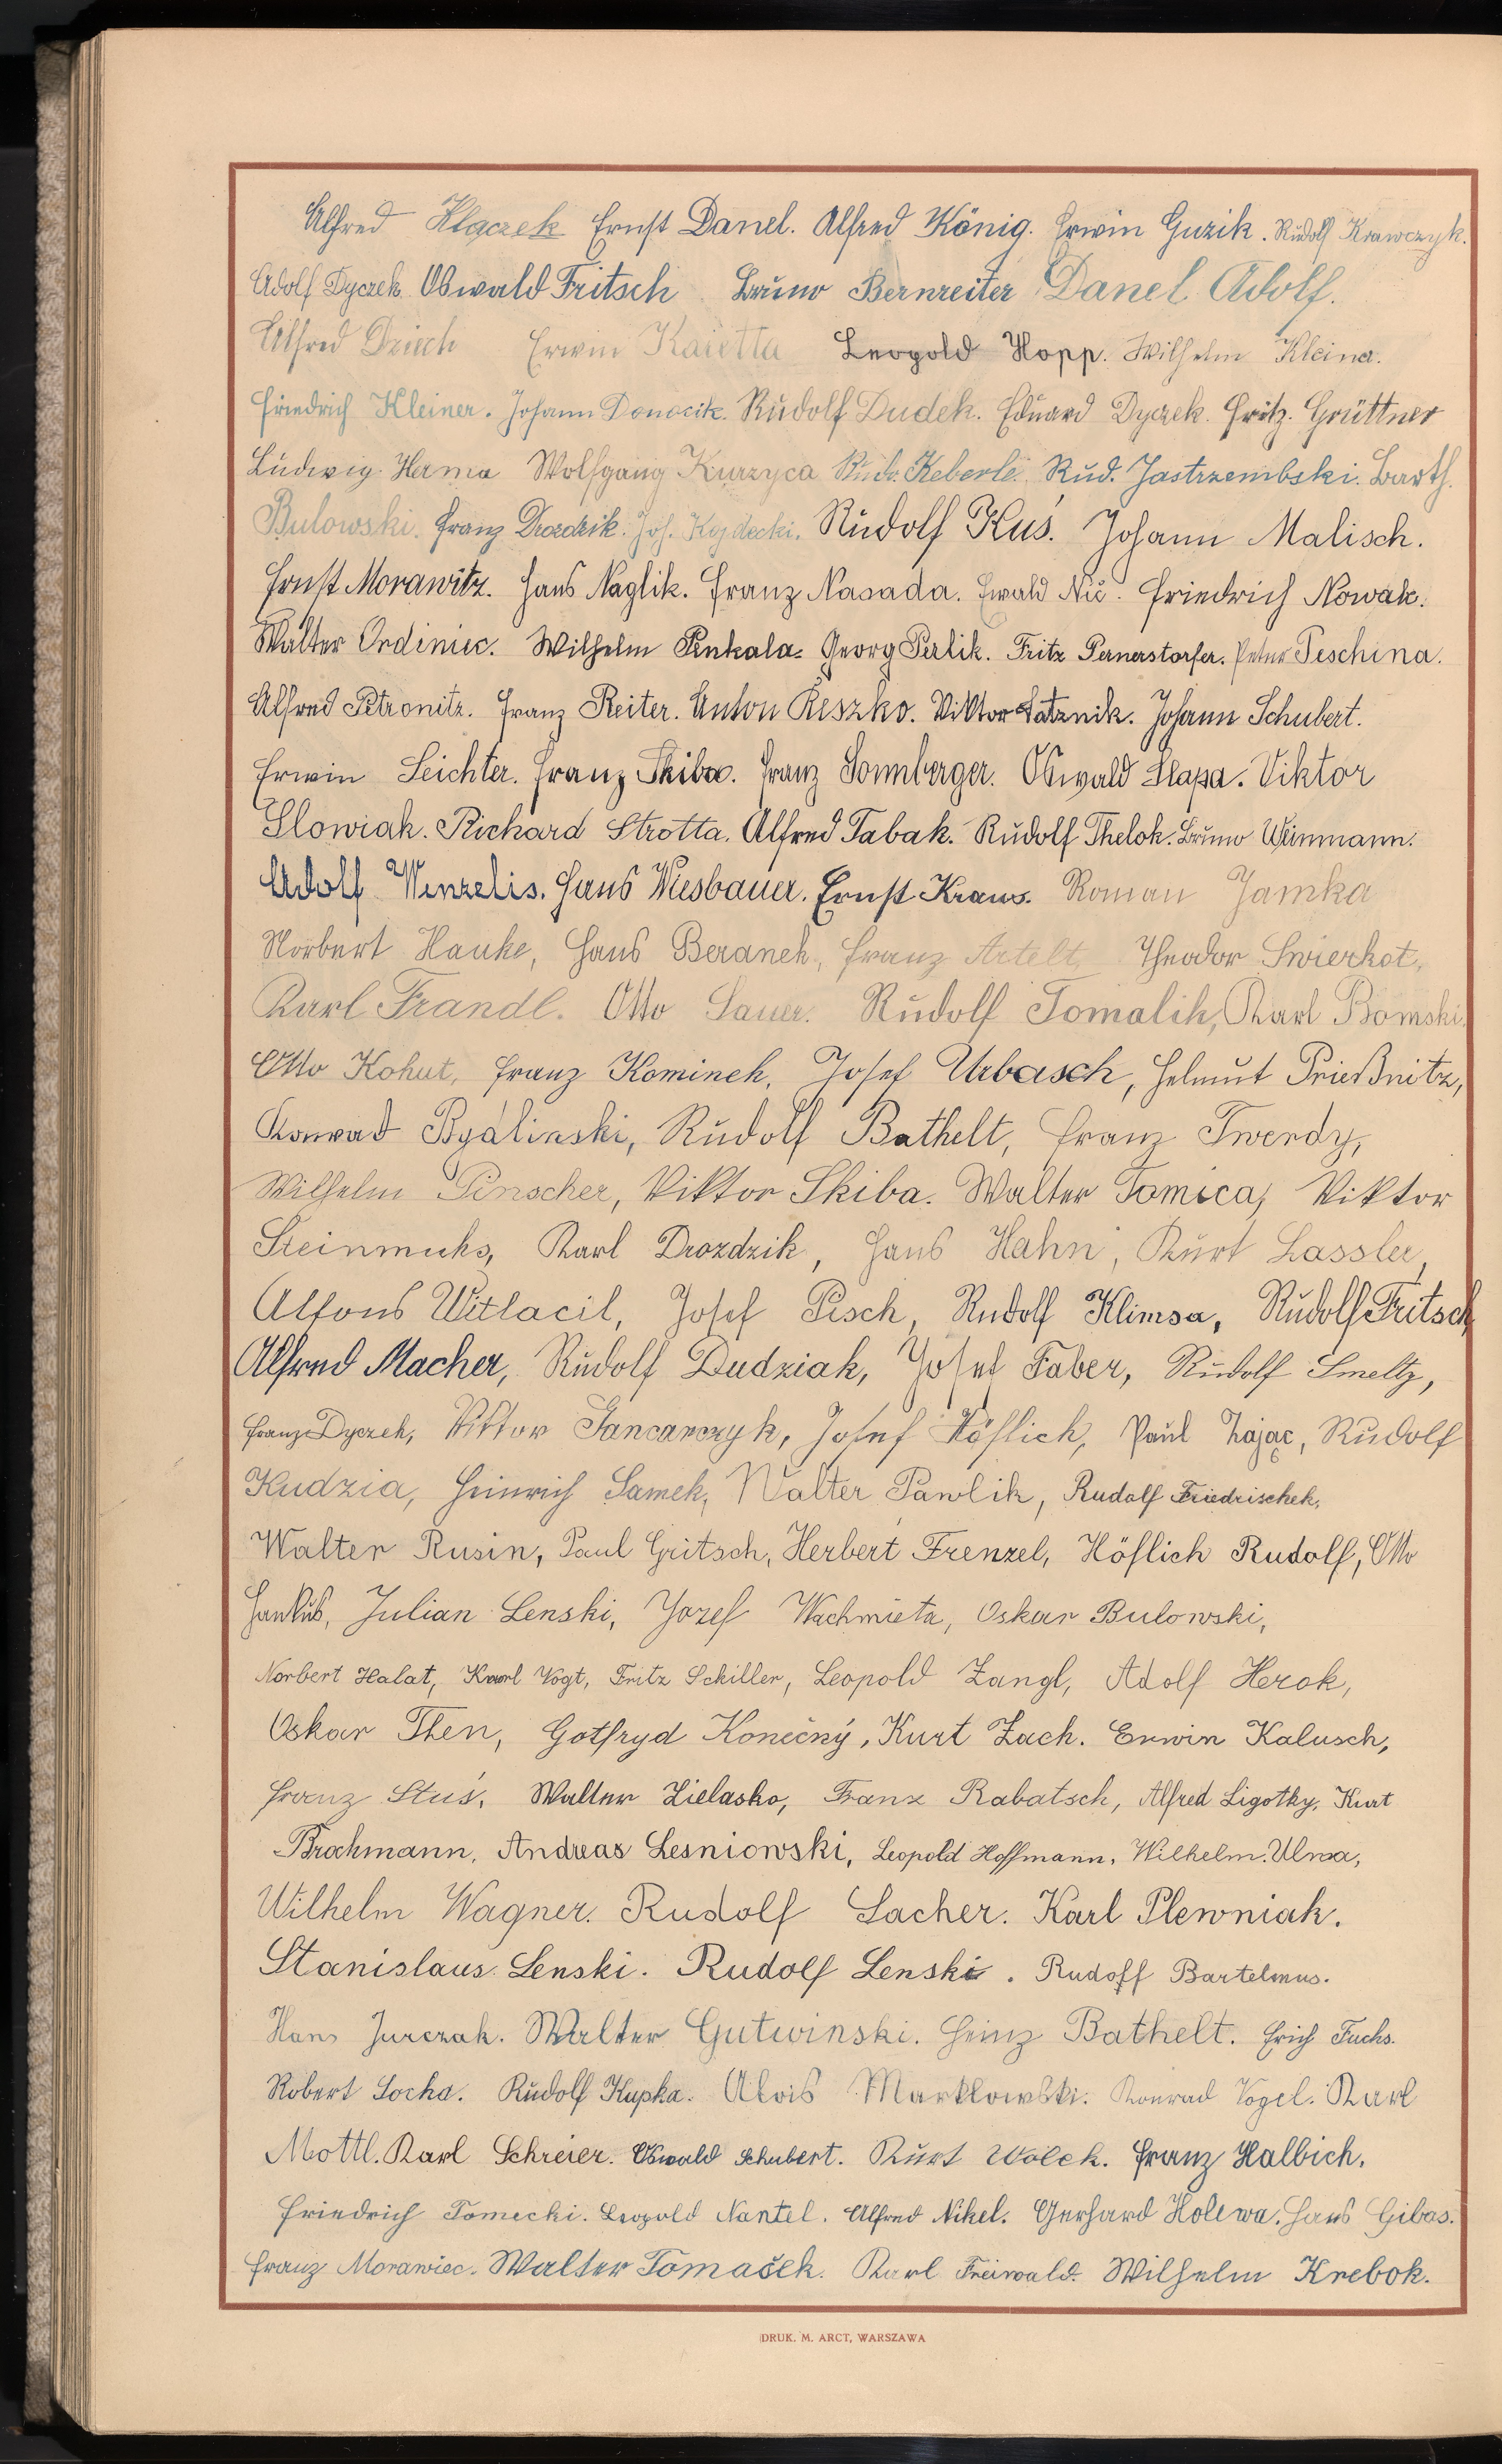 Alfred Klaczek Ernst Danel. Alfred König. Erwin Guzik. Rudolf Krawczyk.
Adolf Dyczek Oswald Fritsch Bruno Bernreiter Danel Adolf.
Alfred Dziech Erwin Karetta Leopold Hopp. Wilhelm Kleina.
Friedrich Kleiner. Johann Donocik. Rudolf Dudek. Eduard Dyczek. Fritz. Grüttner
Ludwig Herma Wolfgang Kurzyca Rud. Keberle. Rud. Jastrzembski. Barth.
Bulowski. Franz Drozdzik. Joh. Kojdecki. Rudolf Kuś. Johann Malisch.
Ernst Morawitz. Hans Naglik. Franz Nasada. Ewald Nič. Friedrich Nowak.
Walter Ordiniec. Wilhelm Penkala. Georg Perlik. Fritz Pernerstorfer. Peter Peschina.
Alfred Petronitz. Franz Reiter. Anton Reszko. Viktor Satznik. Johann Schubert.
Erwin Seichter. Franz Skiba. Franz Sonnberger. Oswald Slapa. Viktor
Slowiak. Richard Strotta. Alfred Tabak. Rudolf Thelok. Bruno Weinmann.
Adolf Wenzelis. Hans Wiesbauer. Ernst Kraus. Roman Jamka
Norbert Hauke, Hans Beranek, Franz Artelt, Theodor Swierkot,
Karl Frandl. Otto Sauer. Rudolf Tomalik, Karl Bomski,
Otto Kohut, Franz Kominek, Josef Urbasch, Helmut Prießnitz,
Konrad Byalinski, Rudolf Bathelt, Franz Twerdy,
Wilhelm Pinscher, Viktor Skiba. Walter Tomica, Viktor
Steinmuhs, Karl Drozdzik, Hans Hahn, Kurt Lassler,
Alfons Witlacil, Josef Pisch, Rudolf Klimsa, Rudolf Fritsch
Alfred Macher, Rudolf Dudziak, Josef Faber, Rudolf Smeltz,
Franz Dyczek, Viktor Jancarczyk, Josef Höflich, Paul Zając, Rudolf
Kudzia, Heinrich Samek, Walter Pawlik, Rudolf Friedrischek,
Walter Rusin, Paul Gritsch, Herbert Frenzel, Höflich Rudolf, Otto
Hankus, Julian Lenski, Jozef Wachmieta, Oskar Bulowski,
Norbert Halat, Karol Vogt, Fritz Schiller, Leopold Zangl, Adolf Herok,
Oskar Then, Gotfryd Konečný, Kurt Zach. Erwin Kalusch,
Franz Stuś, Walter Zielasko, Franz Rabatsch, Alfred Ligotky, Kurt
Brochmann, Andreas Lesniowski, Leopold Hoffmann, Wilhelm Ulma,
Wilhelm Wagner. Rudolf Lacher. Karl Plewniak.
Stanislaus Lenski. Rudolf Lenski. Rudolf Bartelmus.
Hans Jurczak. Walter Gutwinski. Heinz Bathelt. Erich Fuchs.
Robert Socha. Rudolf Kupka. Alois Marklowski. Konrad Vogel. Karl
Mottl. Karl Schreier. Oswald Schubert. Kurt Wolek. Franz Halbich.
Friedrich Tomecki. Leopold Nantel. Alfred Nikel. Gerhard Holewa. Hans Gibas.
Franz Morawiec. Walter Tomašek. Karl Freiwald. Wilhelm Krebok.
DRUK. M. ARCT, WARSZAWA